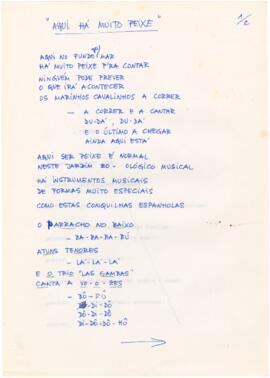 "AQUI HÁ MUITO PEIXE"
1/2
AQUI NO FUNDO MAR
HÁ MUITO PEIXE P'RA CONTAR
NINGUÉM PODE PREVER
O QUE IRÁ ACONTECER
OS MARINHOS CAVALINHOS A CORRER
- A CORRER E A CANTAR
DU-DÁ, DU-DÁ
E O ÚLTIMO A CHEGAR
AINDA AQUI ESTÁ
AQUI SER PEIXE É NORMAL
NESTE JARDIM BO-OLÓGICO MUSICAL
HÁ INSTRUMENTOS MUSICAIS
DE FORMAS MUITO ESPECIAIS
COMO ESTAS CONQUILHAS ESPANHOLAS
O BARRACHO NO BAIXO
- BA-BA-BA-BÚ
ATUNS TENORES
- LÁ-LÁ-LÁ
E O TRIO "LAS GAMBAS"
CANTA A VO-O-ZES
- DÔ-DÔ
DI-DÔ
DÔ-DI-DÔ
DI-DÔ-DÔ-HÔ